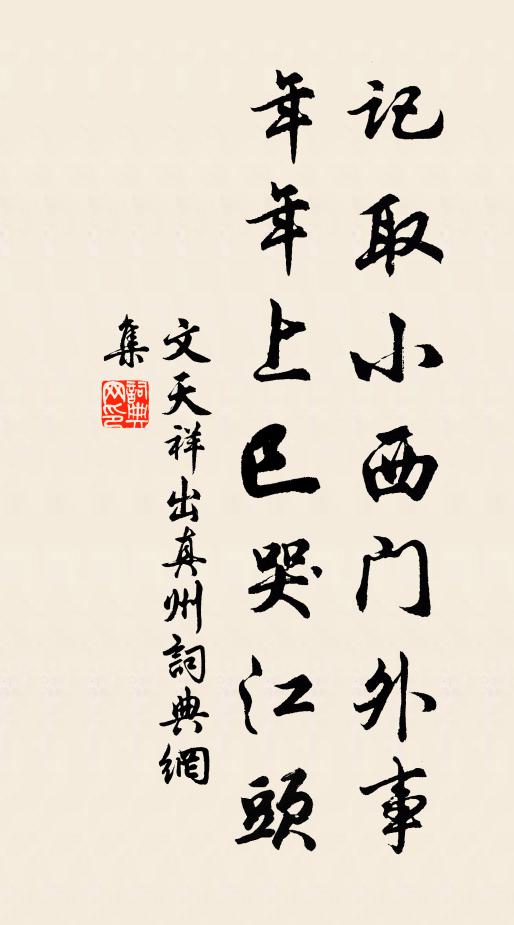 記取小西門外事
年年上巳哭江頭
文天祥出真州詞典網
集
詞典
网印